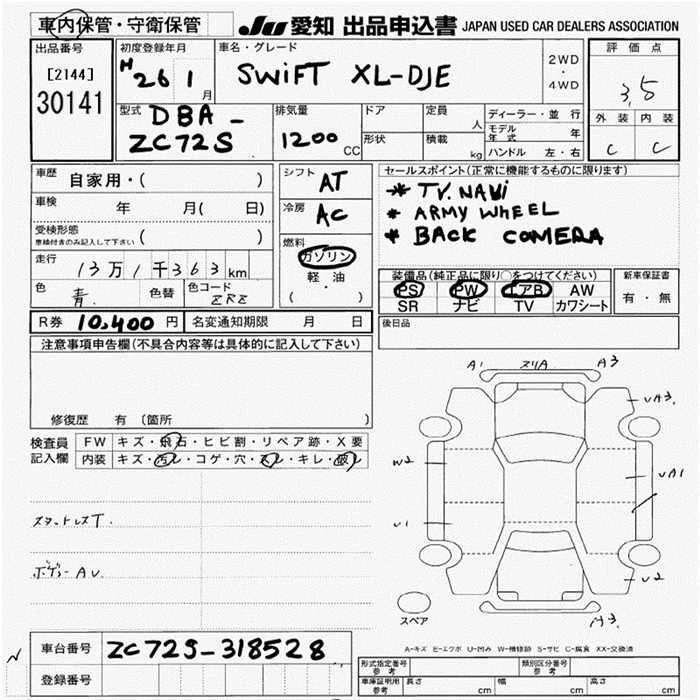 車内保管・守衛保管
JU 愛知 出品申込書 JAPAN USED CAR DEALERS ASSOCIATION
出品番号
[2144]
30141
初度登録年月
H 26 1 月
車名・グレード
SWiFT XL-DJE
2WD
・
4WD
評価点
3,5
外装 内装
C C
型式
DBA -
ZC72S
排気量
1200 CC
ドア
形状
定員 人
積載 kg
ディーラー・並行
モデル年式 年
ハンドル 左・右
車歴 自家用・( )
車検 年 月( 日)
受検形態
車検付きのみ記入して下さい ( )
走行 13万1千363km
色 青. 色替 色コード ZRZ
シフト AT
冷房 AC
燃料
ガソリン
軽・油
( )
セールスポイント(正常に機能するものに限ります)
* TV.NAVi
* ARMY WHEEL
* BACK COMERA
装備品(純正品に限り○をつけてください)
PS PW エアB AW
SR ナビ TV カワシート
新車保証書
有・無
R券 10,400 円 名変通知期限 月 日
後日品
注意事項申告欄(不具合内容等は具体的に記入して下さい)
修復歴 有 (箇所 )
検査員記入欄
FW キズ・飛石・ヒビ割・リペア跡・X要
内装 キズ・汚レ・コゲ・穴・スレ・キレ・破レ
スタットレスT.
ボデーAU.
A1 スリA A3
UA3
W2 UA1
U1
U2
A3
スペア
A-キズ E-エクボ U-凹み W-補修跡 S-サビ C-腐食 XX-交換済
N
車台番号 ZC72S-318528
登録番号
形式指定番号 参考
類別区分番号 参考
車庫証明用 参考 長さ cm 幅 cm 高さ cm